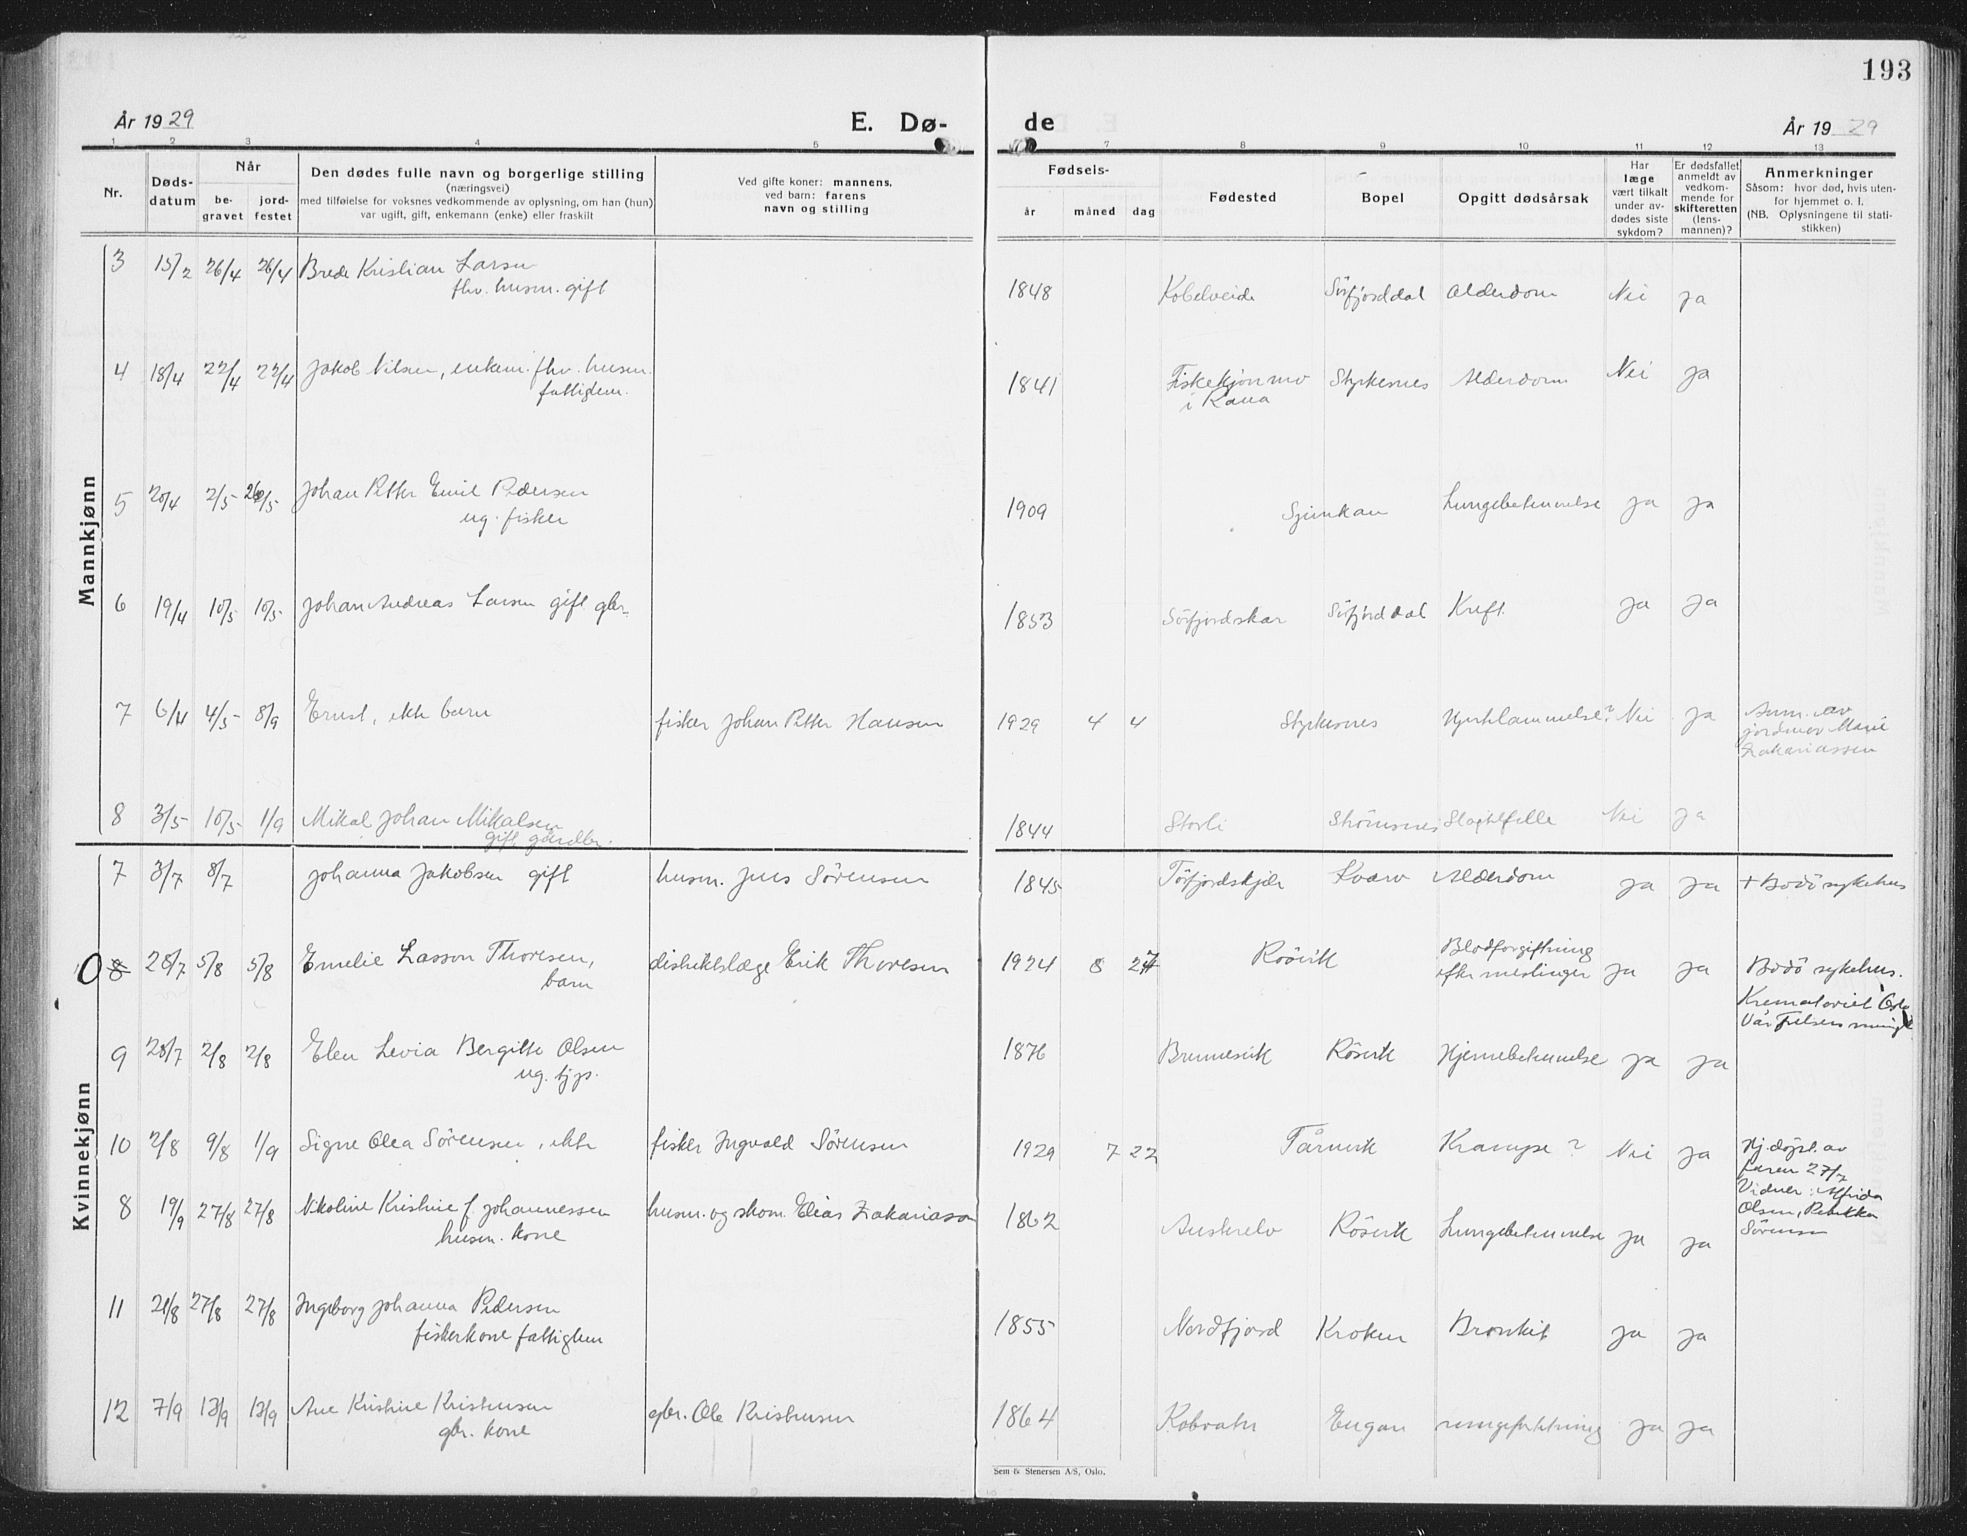 193
År 1929
E. Dø-
de
År 1929
1 2 3 4 5 7 8 9 10 11 12 13
Nr.
Døds-
datum
Når
be-
gravet
jord-
festet
Den dødes fulle navn og borgerlige stilling
(næringsvei)
med tilføielse for voksnes vedkommende av oplysning, om han (hun)
var ugift, gift, enkemann (enke) eller fraskilt
Ved gifte koner: mannens,
ved barn: farens
navn og stilling
Fødsels-
år
måned
dag
Fødested
Bopel
Opgitt dødsårsak
Har
læge
vært tilkalt
under av-
dødes siste
sykdom?
Er dødsfallet
anmeldt av
vedkom-
mende for
skifteretten
(lens-
mannen)?
Anmerkninger
Såsom: hvor død, hvis uten-
for hjemmet o. l.
(NB. Oplysningene til stati-
stikken)
Mannkjønn
3 15/2 26/4 26/4 Brede Kristian Larsen
fhv. husm. gift
1848 Kobelveide Sörfjorddal Alderdom Nei ja
4 18/4 22/4 22/4 Jakob Nilsen, enkem. fhv. husm.
fattiglem.
1841 Fiskekjønmo
i Rana
Styrkesnes Alderdom Nei ja
5 20/4 2/5 26/5 Johan Petter Emil Pedersen
ug. fisker
1909 Sjunkan Lungebetennelse ja ja
6 19/4 10/5 10/5 Johan Andreas Larsen gift gbr.
1853 Sörfjordskar Sörfjorddal Kreft ja ja
7 6/4 4/5 8/9 Ernst, ekte barn
fisker Johan Petter Hansen
1929 4 4 Styrkesnes Hjertelammelse? Nei ja
Anm. av
jordmor Marie
Zakariassen
8 3/5 10/5 1/9 Mikal Johan Mikalsen
gift gårdbr.
1844 Storli Strömsnes Slagtilfelle Nei ja
Kvinnekjønn
7 3/7 8/7 Johanna Jakobsen gift
husm. Jens Sörensen
1845 Kvarv Alderdom ja ja + Bodö sykehus
0 8 28/7 5/8 5/8 Emelie Lasson Thoresen,
barn
distriktslæge Erik Thoresen
1924 8 27 Röövik
Blodforgiftning
efter meslinger
ja ja Bodö sykehus.
Krematoriet Oslo
Vår Frelsers
9 28/7 2/8 2/8 Elen Levia Bergitte Olsen
ug. tjp.
1876 Brunnesvik Rösvik Hjernebetennelse ja ja
10 2/8 9/8 1/9 Signe Olea Sörensen, ekte
fisker Ingvald Sörensen
1929 7 22 Tårnvik Krampe? Nei ja
Hj.døpt av
faren 27/7
Vidner: Alfrida
Olsen, Rebekka
Sörensen
8 19/9 27/8 27/8 Nikoline Kristine f. Johannessen
husm. kone
husm. og skom. Elias Zakariason
1862 Austerelv Rösvik Lungebetennelse ja ja
11 21/8 27/8 27/8 Ingeborg Johanna Pedersen
fiskerkone fattiglem
1855 Nordfjord Kroken Bronkit ja ja
12 7/9 13/9 13/9 Ane Kristine Kristensen
gbr. kone
gbr. Ole Kristensen
1864 Kobvatn Engan ja ja
Sem & Stenersen A/S, Oslo.